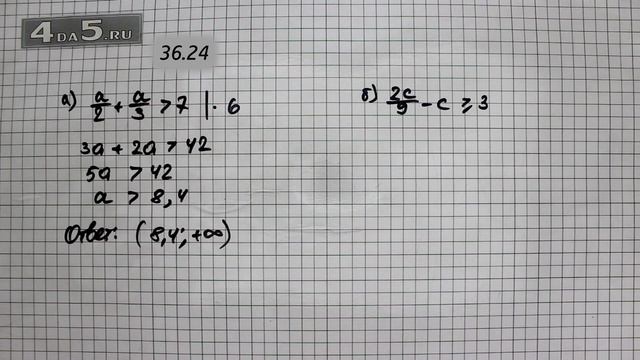 4ДА5.RU
36.24
а) a/2 + a/3 > 7 | · 6
3a + 2a > 42
5a > 42
a > 8,4
Ответ: (8,4; +∞)
б) 2c/9 - c ≥ 3